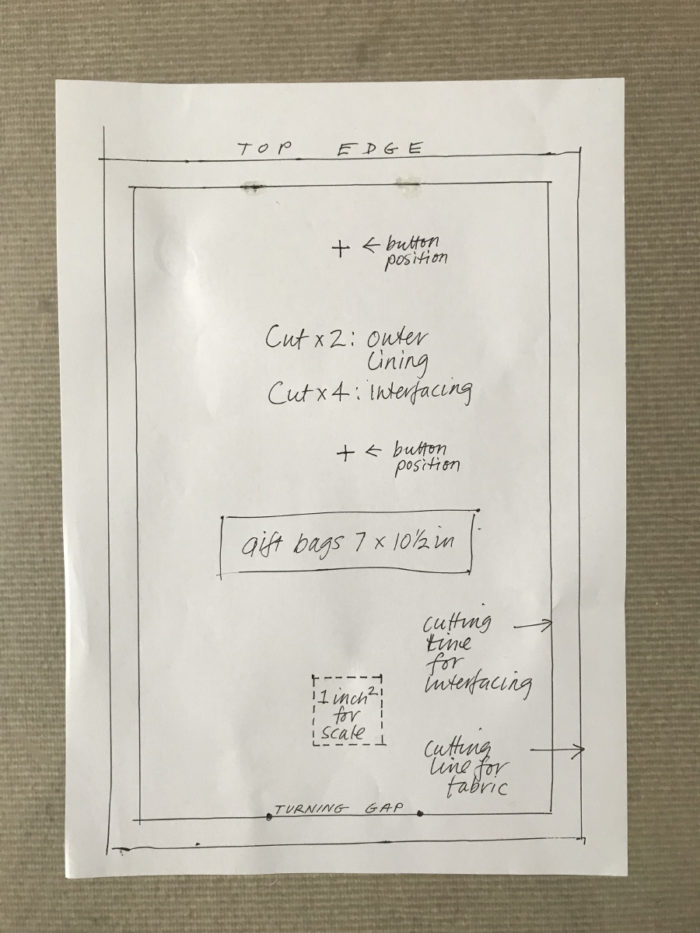 TOP EDGE
+ ← button
position
Cut x 2: outer
Lining
Cut x 4: interfacing
+ ← button
position
gift bags 7 x 10½ in
cutting →
line
for
interfacing
1 inch²
for
scale
cutting →
line for
fabric
TURNING GAP